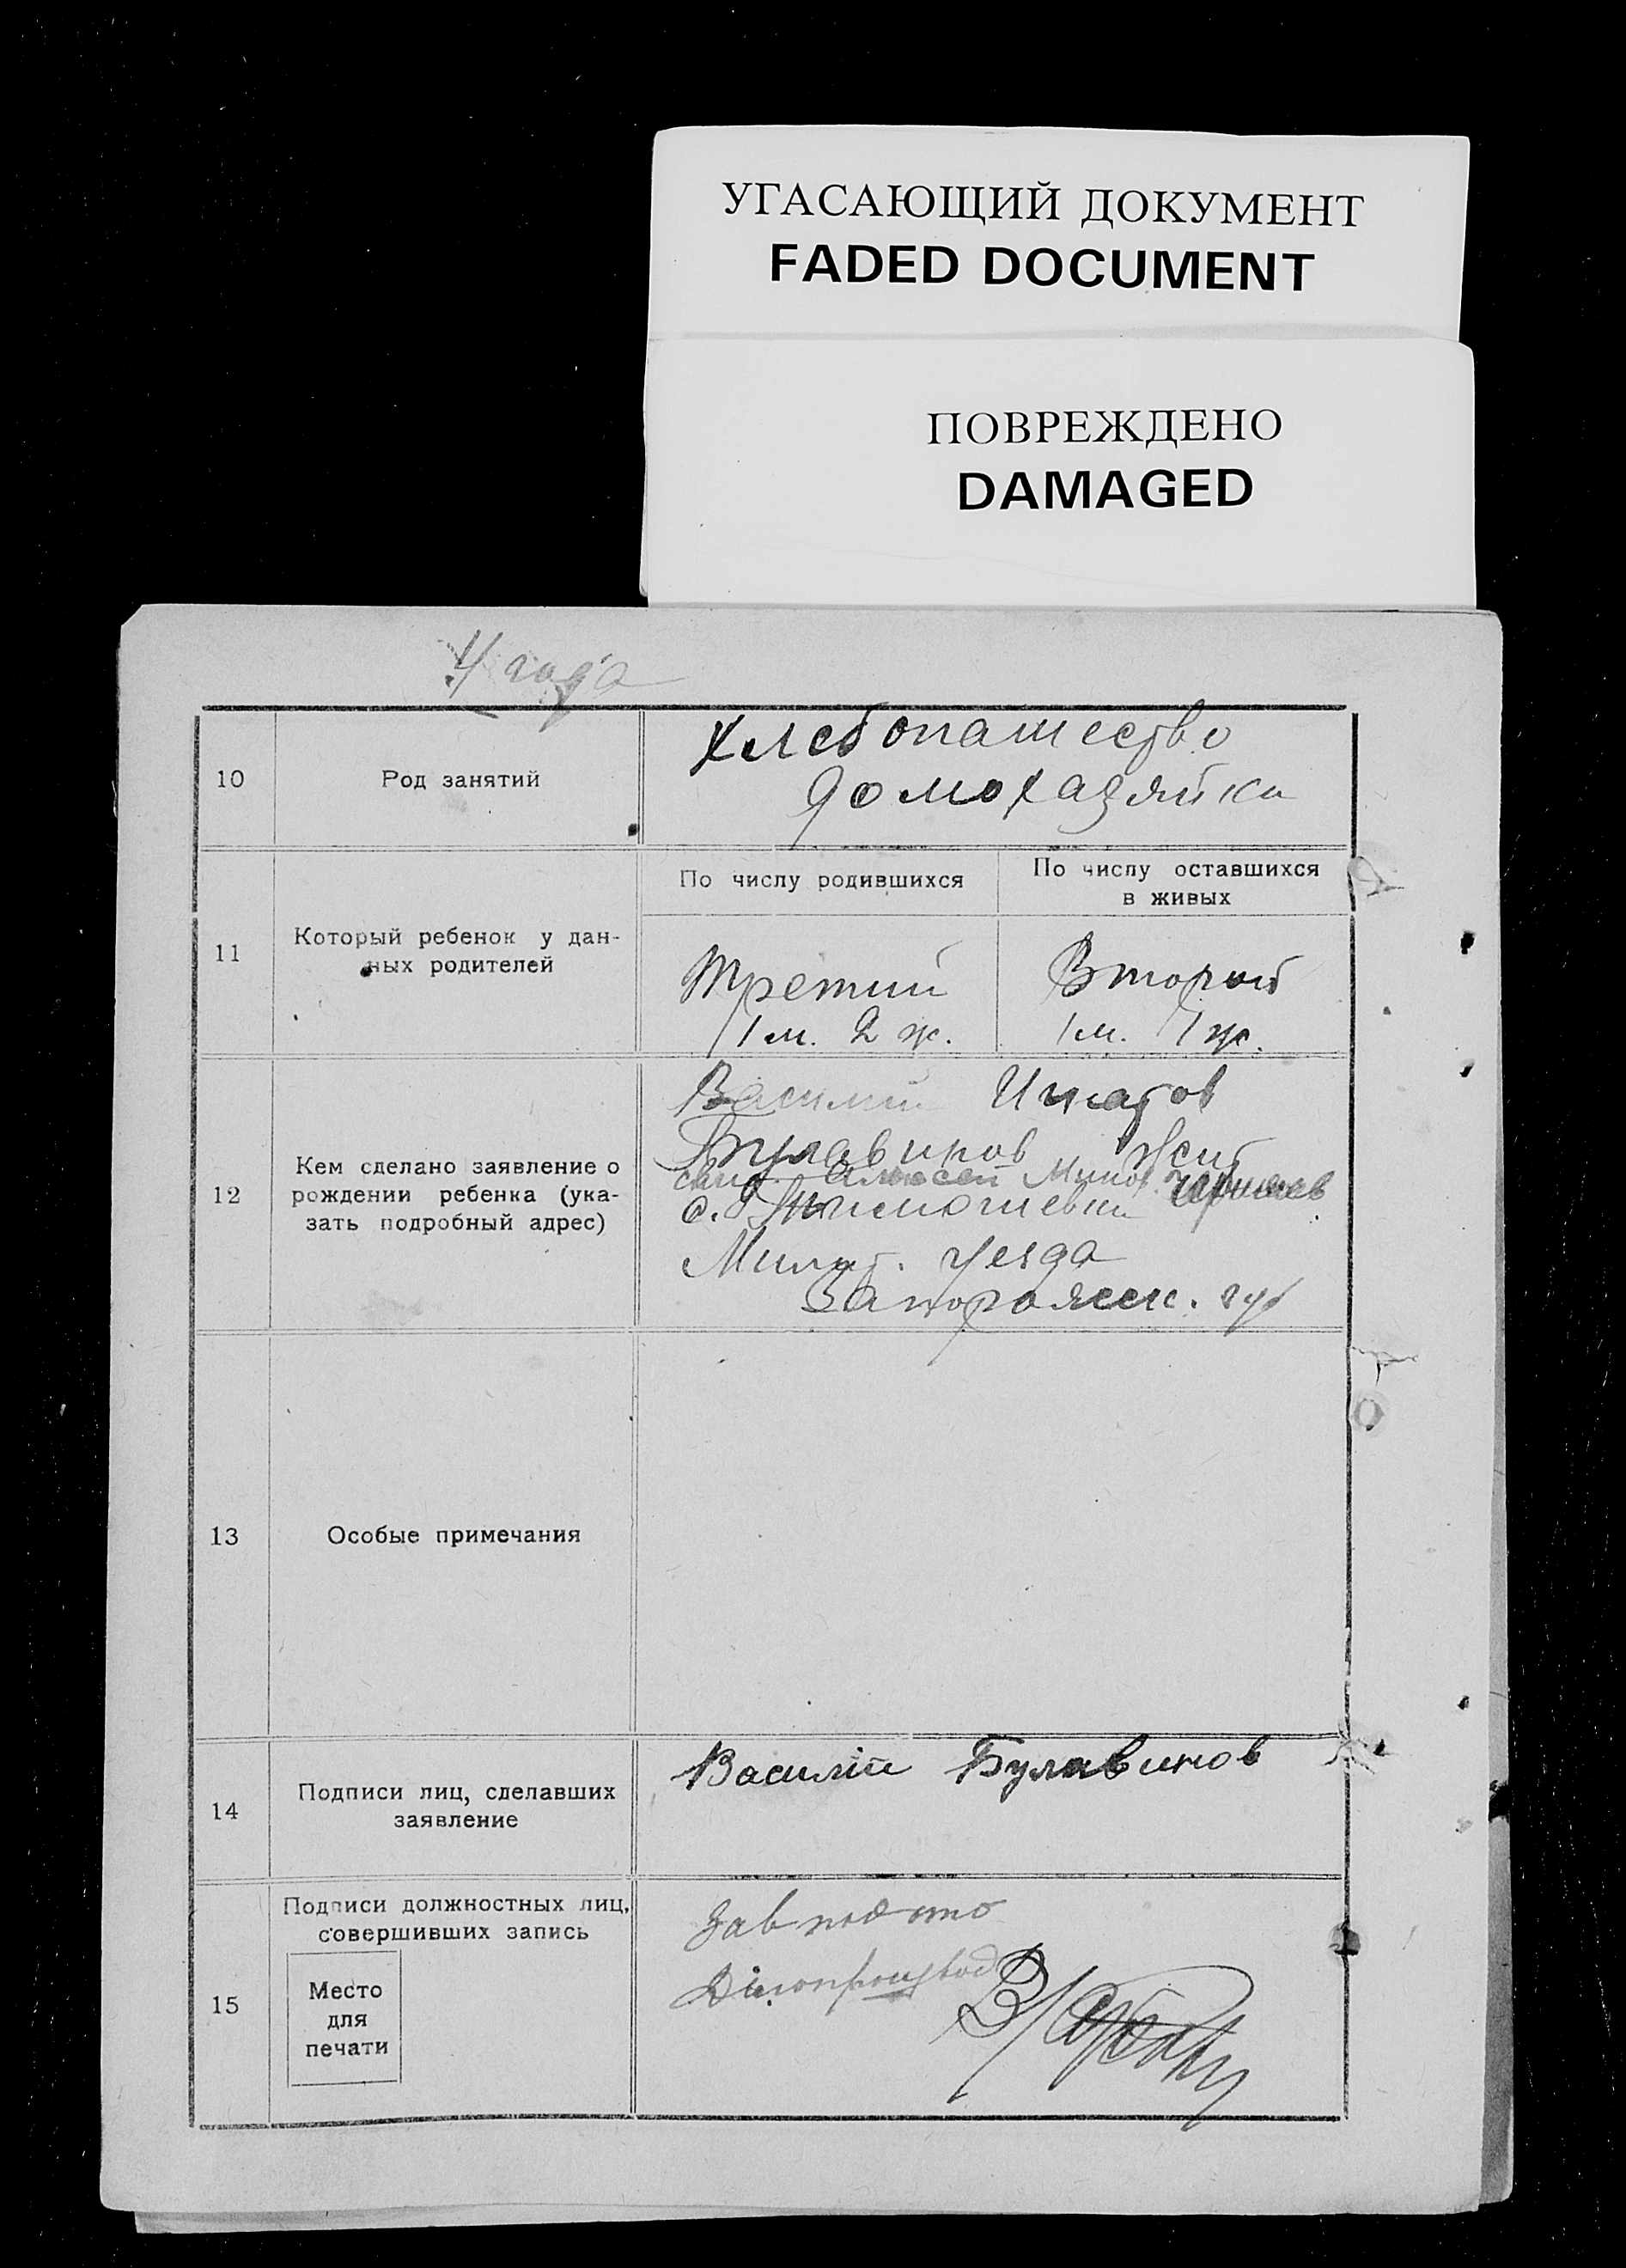 УГАСАЮЩИЙ ДОКУМЕНТ
FADED DOCUMENT
ПОВРЕЖДЕНО
DAMAGED
года
10
Род занятий
Хлебопашество
домохазяйка
11
Который ребенок у дан-
ных родителей
По числу родившихся
По числу оставшихся
в живых
Третий
1 м. 2 ж.
Второй
1 м. 1 ж.
12
Кем сделано заявление о
рождении ребенка (ука-
зать подробный адрес)
Василий Игнатов
Булавинов жит
с. Тимошевки
Мелит. уезда
Запорожск. губ
13
Особые примечания
14
Подписи лиц, сделавших
заявление
Василій Булавинов
15
Подписи должностных лиц,
совершивших запись
Место
для
печати
Зав подотд